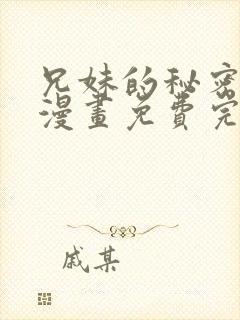 兄妹的秘密
漫畫免費完
戚某